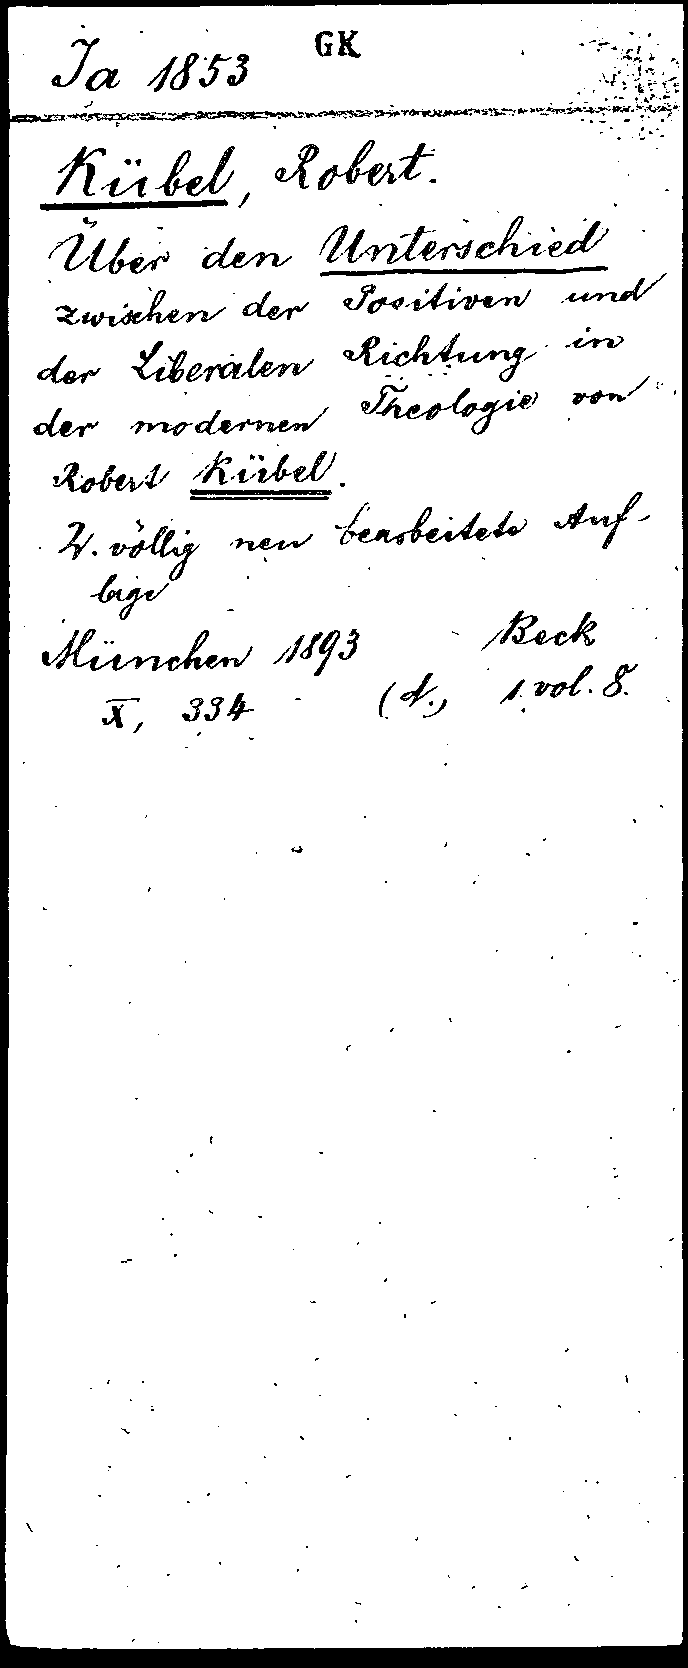 Ja 1853 GK
Kübel, Robert.
Über den Unterschied
zwischen der Positiven und
der Liberalen Richtung in
der modernen Theologie von
Robert Kübel.
2. völlig neu bearbeitete Auf-
lage
München 1893 Beck
X, 334 1 vol. 8.